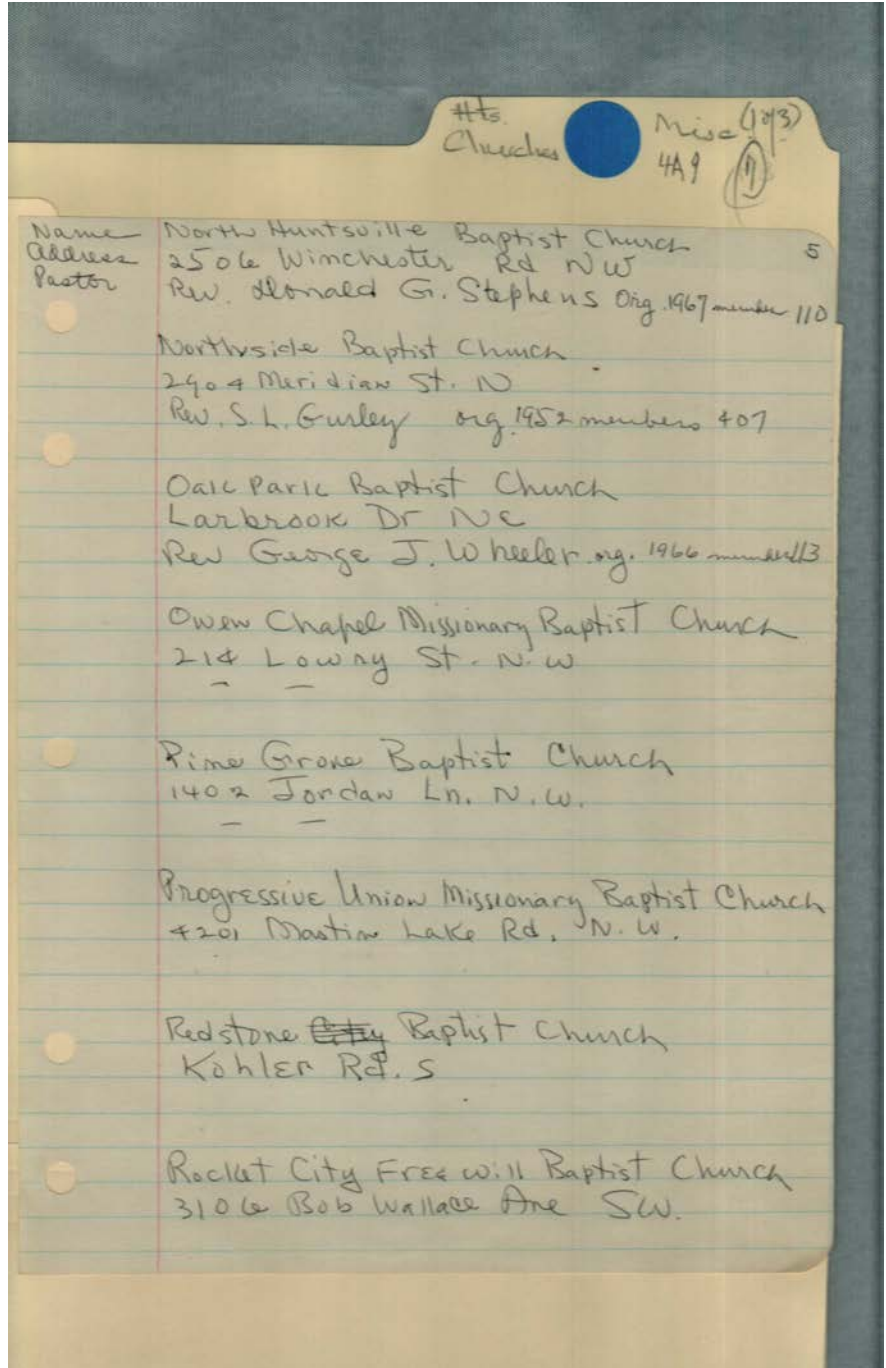 Hts.
Churches
Misc (1 of 3)
4A9
5
Name North Huntsville Baptist Church
Address 2506 Winchester Rd NW
Pastor Rev. Donald G. Stephens Org. 1967 member 110
Northside Baptist Church
2904 Meridian St. N
Rev. S. L. Gurley org. 1952 members 407
Oak Park Baptist Church
Larbrook Dr NE
Rev George J. Wheeler org. 1966 member 113
Owen Chapel Missionary Baptist Church
214 Lowry St. N.W
Pine Grove Baptist Church
1402 Jordan Ln. N.W.
Progressive Union Missionary Baptist Church
4201 Mastin Lake Rd. N.W.
Redstone City Baptist Church
Kohler Rd. S
Rocket City Free Will Baptist Church
3106 Bob Wallace Ave SW.